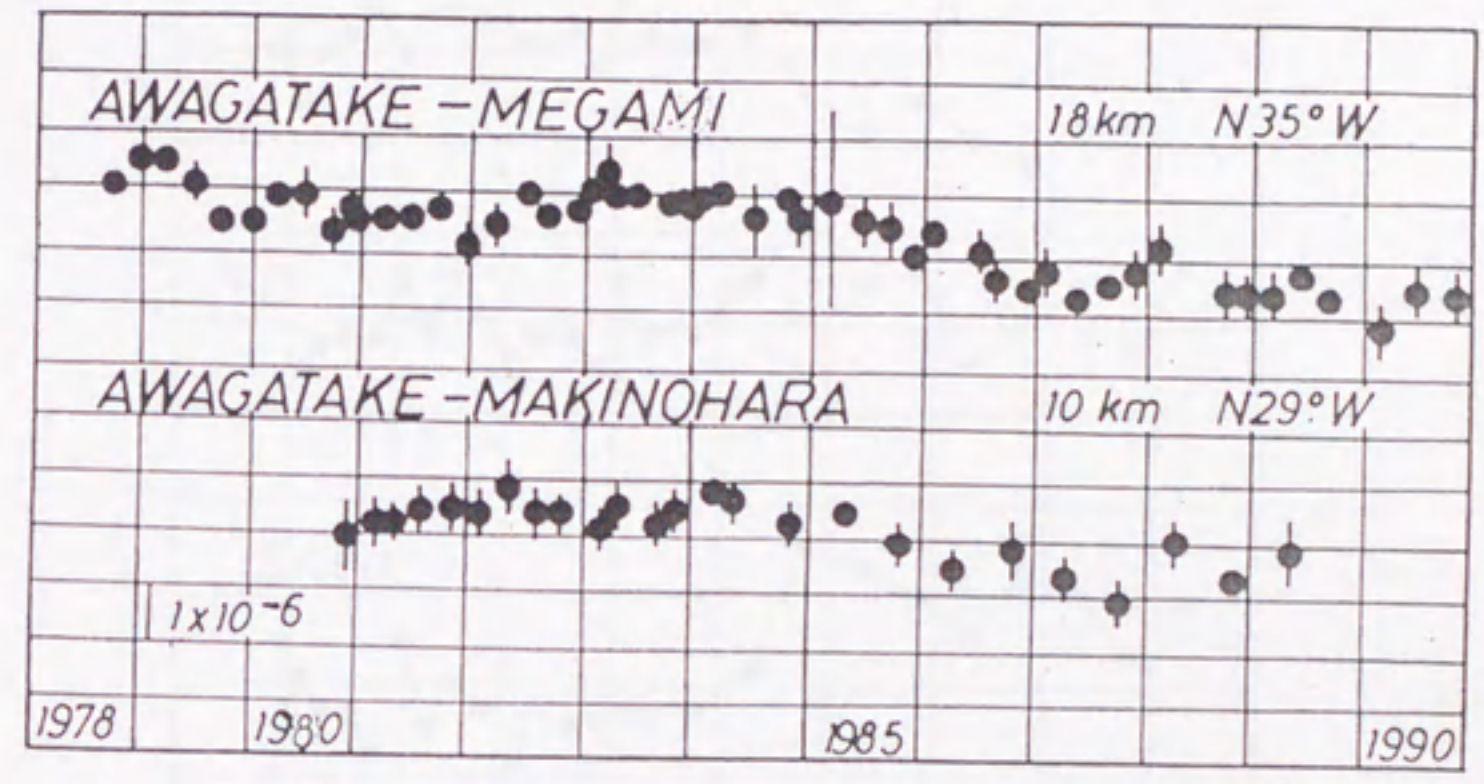 AWAGATAKE – MEGAMI 18km N35°W
AWAGATAKE – MAKINOHARA 10 km N29°W
1x10⁻⁶
1978 1980 1985 1990